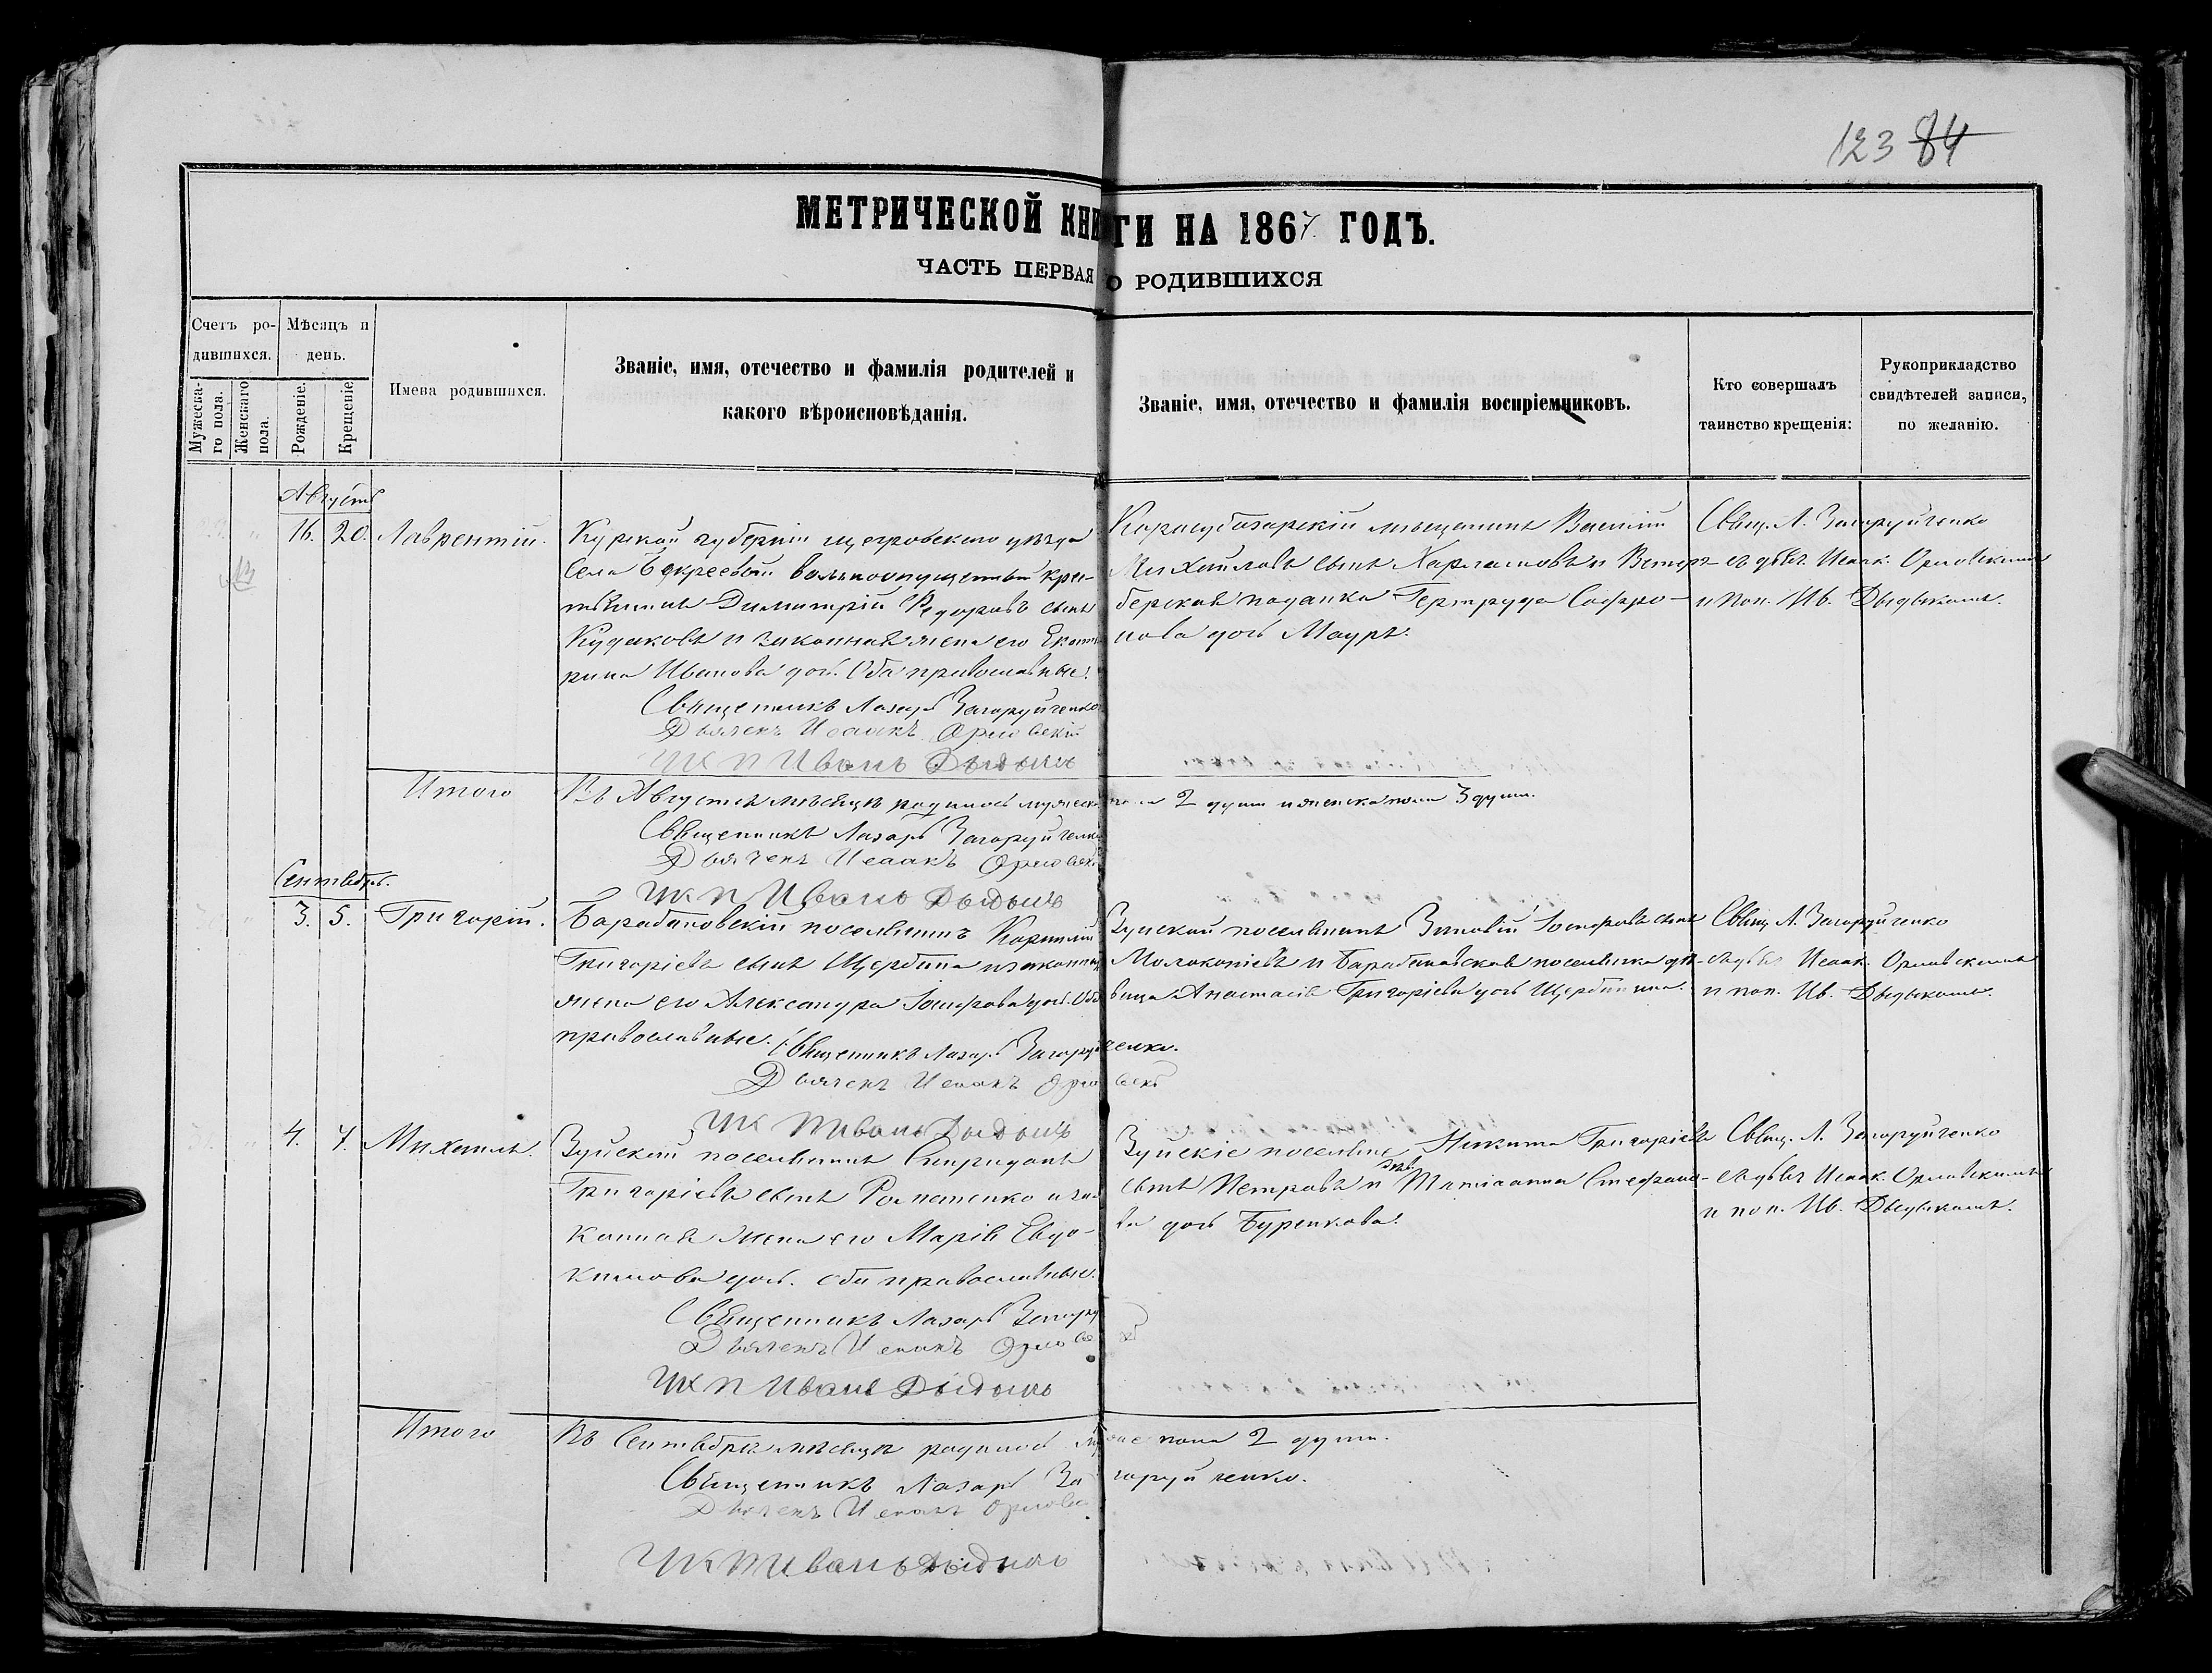 123 84
МЕТРИЧЕСКОЙ КНИГИ НА 1867 ГОДЪ.
ЧАСТЬ ПЕРВАЯ О РОДИВШИХСЯ
Счетъ родившихся.
Мужескаго пола.
Женскаго пола.
Мѣсяцъ и день.
Рожденіе.
Крещеніе.
Имена родившихся.
Званіе, имя, отечество и фамилія родителей и
какого вѣроисповѣданія.
Званіе, имя, отечество и фамилія воспріемниковъ.
Кто совершалъ
таинство крещенія:
Рукоприкладство
свидѣтелей записи,
по желанію.
Августъ
16. 20. Лаврентій.
Курской губерніи щегровского уѣзда
Села вольноотпущенный кре-
стьянинъ Димитрій Ѳедоровъ сынъ
Кудаковъ и законная жена его Екате
рина Иванова дочь. Оба православные.
Священникъ Лазарь Загоруйченко
Дьячекъ Исаакъ Орловскій
Иванъ Дыдынъ
Карасубазарскій мѣщанинъ Василій
Михайловъ сынъ Харламовъ и Вютем-
бергская поданка Гертруда Софро-
нова дочь Мауръ.
Свящ. Л. Загоруйченко
съ дьяч. Исаак. Орловскимъ
и пон. Ив. Дыдыкомъ.
Итого
Въ Августѣ мѣсяцѣ родилось мужеска пола 2 души и женска пола 3 души.
Священникъ Лазарь Загоруйченко
Дьячекъ Исаакъ Орловскій
Иванъ Дыдынъ
Сентябрь.
3. 5. Григорій.
Барабановскій поселянинъ Корнилій
Григоріевъ сынъ Щербина и законная
жена его Александра Іосифова дочь. Оба
православные. Священникъ Лазарь Загоруйченко.
Дьячекъ Исаакъ Орловскій
Иванъ Дыдынъ
Зуйской поселянинъ Зиновій Іосифовъ сынъ
Молокотіевъ и Барабановская поселянка дѣ-
вица Анастасія Григоріева дочь Щербинина.
Свящ. Л. Загоруйченко
съ дьяч. Исаак. Орловскимъ
и пон. Ив. Дыдыкомъ.
4. 7. Михаилъ.
Зуйскій поселянинъ Спиридонъ
Григоріевъ сынъ Романенко и за-
конная жена его Марія Евдо-
кимова дочь. Оба православные.
Священникъ Лазарь Загоруй
Дьячекъ Исаакъ Орловскій
Иванъ Дыдынъ
Зуйскіе поселяне Никита Григоріевъ
сынъ Петровъ и Татіанна Стефано-
ва дочь Буренкова.
Свящ. Л. Загоруйченко
съ дьяч. Исаак. Орловскимъ
и пон. Ив. Дыдыкомъ.
Итого
Въ Сентябрѣ мѣсяцѣ родилось муже пола 2 души.
Священникъ Лазарь Загоруйченко.
Дьячекъ Исаакъ Орловскій
Иванъ Дыдынъ